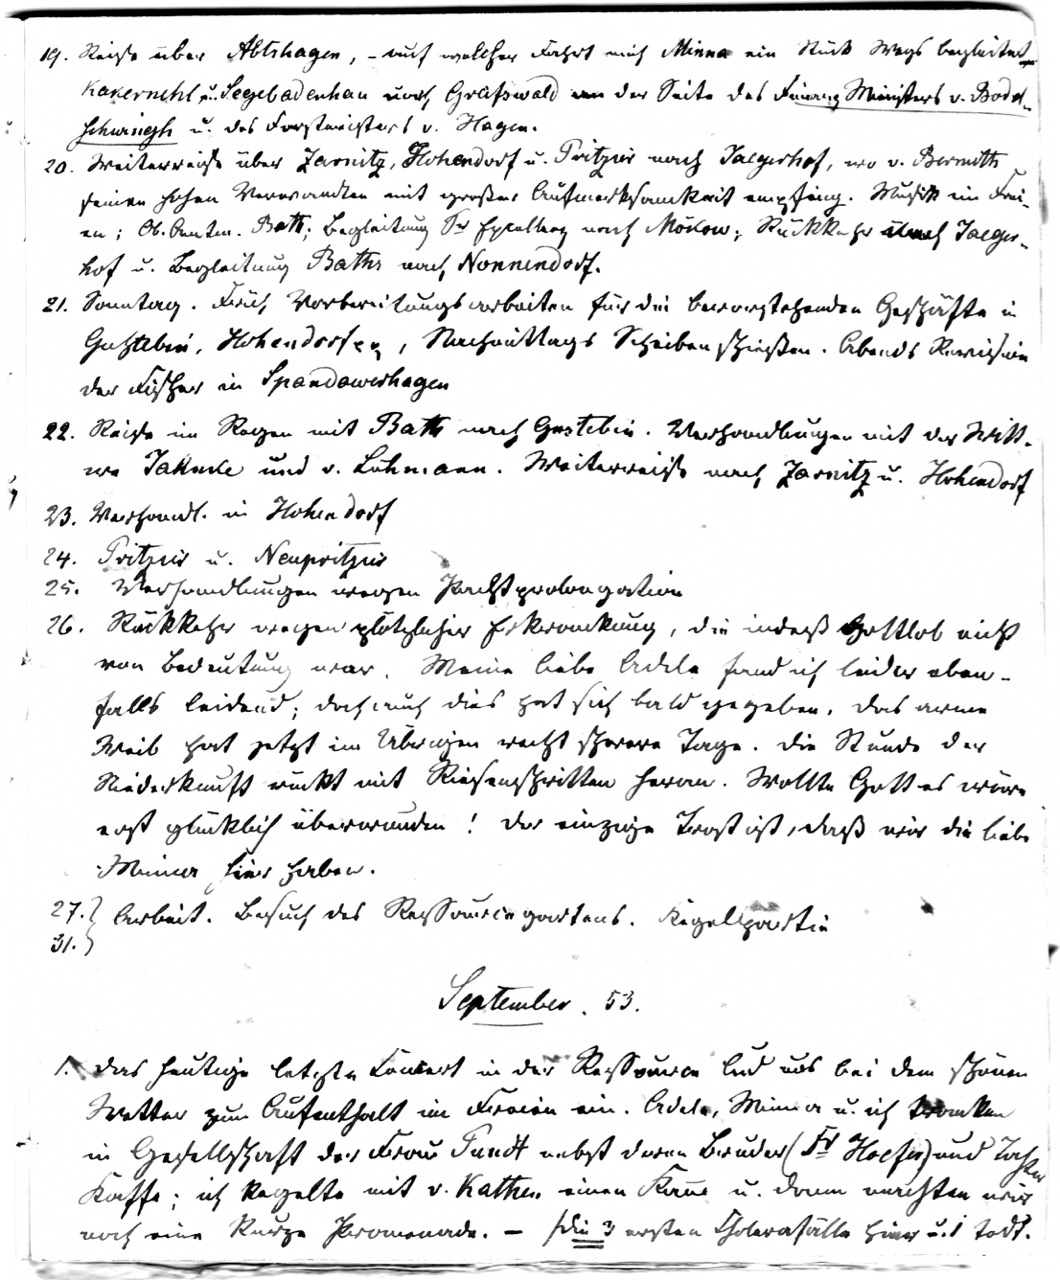 19. Reise über Abtshagen, – auf welcher Fahrt mich Minna ein Stück Wegs begleitet
Kakernehl u. Segebadenhau nach Greifswald an der Seite des Finanz Ministers v. Bodel-
schwingh u. des Forstmeisters v. Hagen.
20. Weiterreise über Zarnitz, Hohendorf u. Pritzier nach Jaegerhof, wo v. Bernuth
seinen hohen Verwandten mit großer Aufmerksamkeit empfing. Musik im Frei-
en; Ob. Amtm. Bath; Begleitung Sr Excellenz nach Mökow; Rückkehr nach Jaeger-
hof u. Begleitung Baths nach Nonnendorf.
21. Sonntag. Früh Vorbereitungsarbeiten für die bevorstehenden Geschäfte in
Gustebin, Hohendorf, Nachmittags Scheibenschießen. Abends Revision
der Fischer in Spandowerhagen
22. Reise im Regen mit Bath nach Gustebin. Verhandlungen mit der Witt-
we Jahncke und v. Lühmann. Weiterreise nach Zarnitz u. Hohendorf
23. Verhandl. in Hohendorf
24. Pritzier u. Neupritzier
25. Verhandlungen wegen Pachtprolongation
26. Rückkehr wegen plötzlicher Erkrankung, die indeß Gottlob nicht
von Bedeutung war. Meine liebe Adele fand ich leider eben-
falls leidend; doch auch dies hat sich bald gegeben. Das arme
Weib hat jetzt im Übrigen recht schwere Tage. Die Stunde der
Niederkunft rückt mit Riesenschritten heran. Wollte Gott es wäre
erst glücklich überwunden! Der einzige Trost ist, daß wir die liebe
Minna hier haben.
27.} Arbeit. Besuch des Ressourcegartens. Kegelpartie
31.}
September. 53.
1. Das heutige letzte Concert in der Ressource lud uns bei dem schönen
Wetter zum Aufenthalt im Freien ein. Adele, Minna u. ich tranken
in Gesellschaft der Frau Pundt nebst deren Bruder (Fr Hoefer) und Tochter
Kaffe; ich kegelte mit v. Kathen einen und dann machten wir
noch eine kurze Promenade. – Die 3 ersten Cholerafälle hier u. 1 todt.